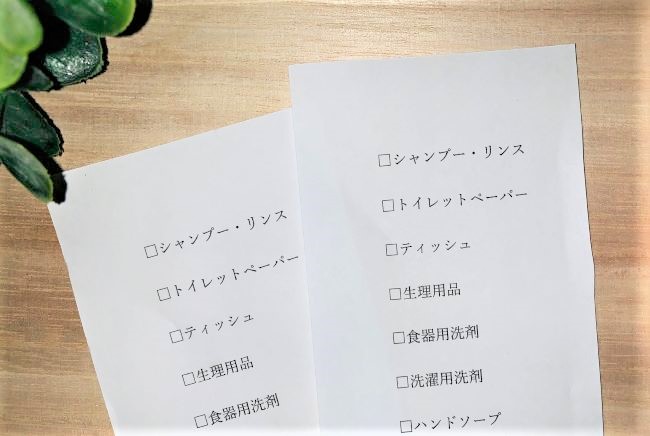 □シャンプー・リンス
□トイレットペーパー
□ティッシュ
□生理用品
□食器用洗剤
□シャンプー・リンス
□トイレットペーパー
□ティッシュ
□生理用品
□食器用洗剤
□洗濯用洗剤
□ハンドソープ